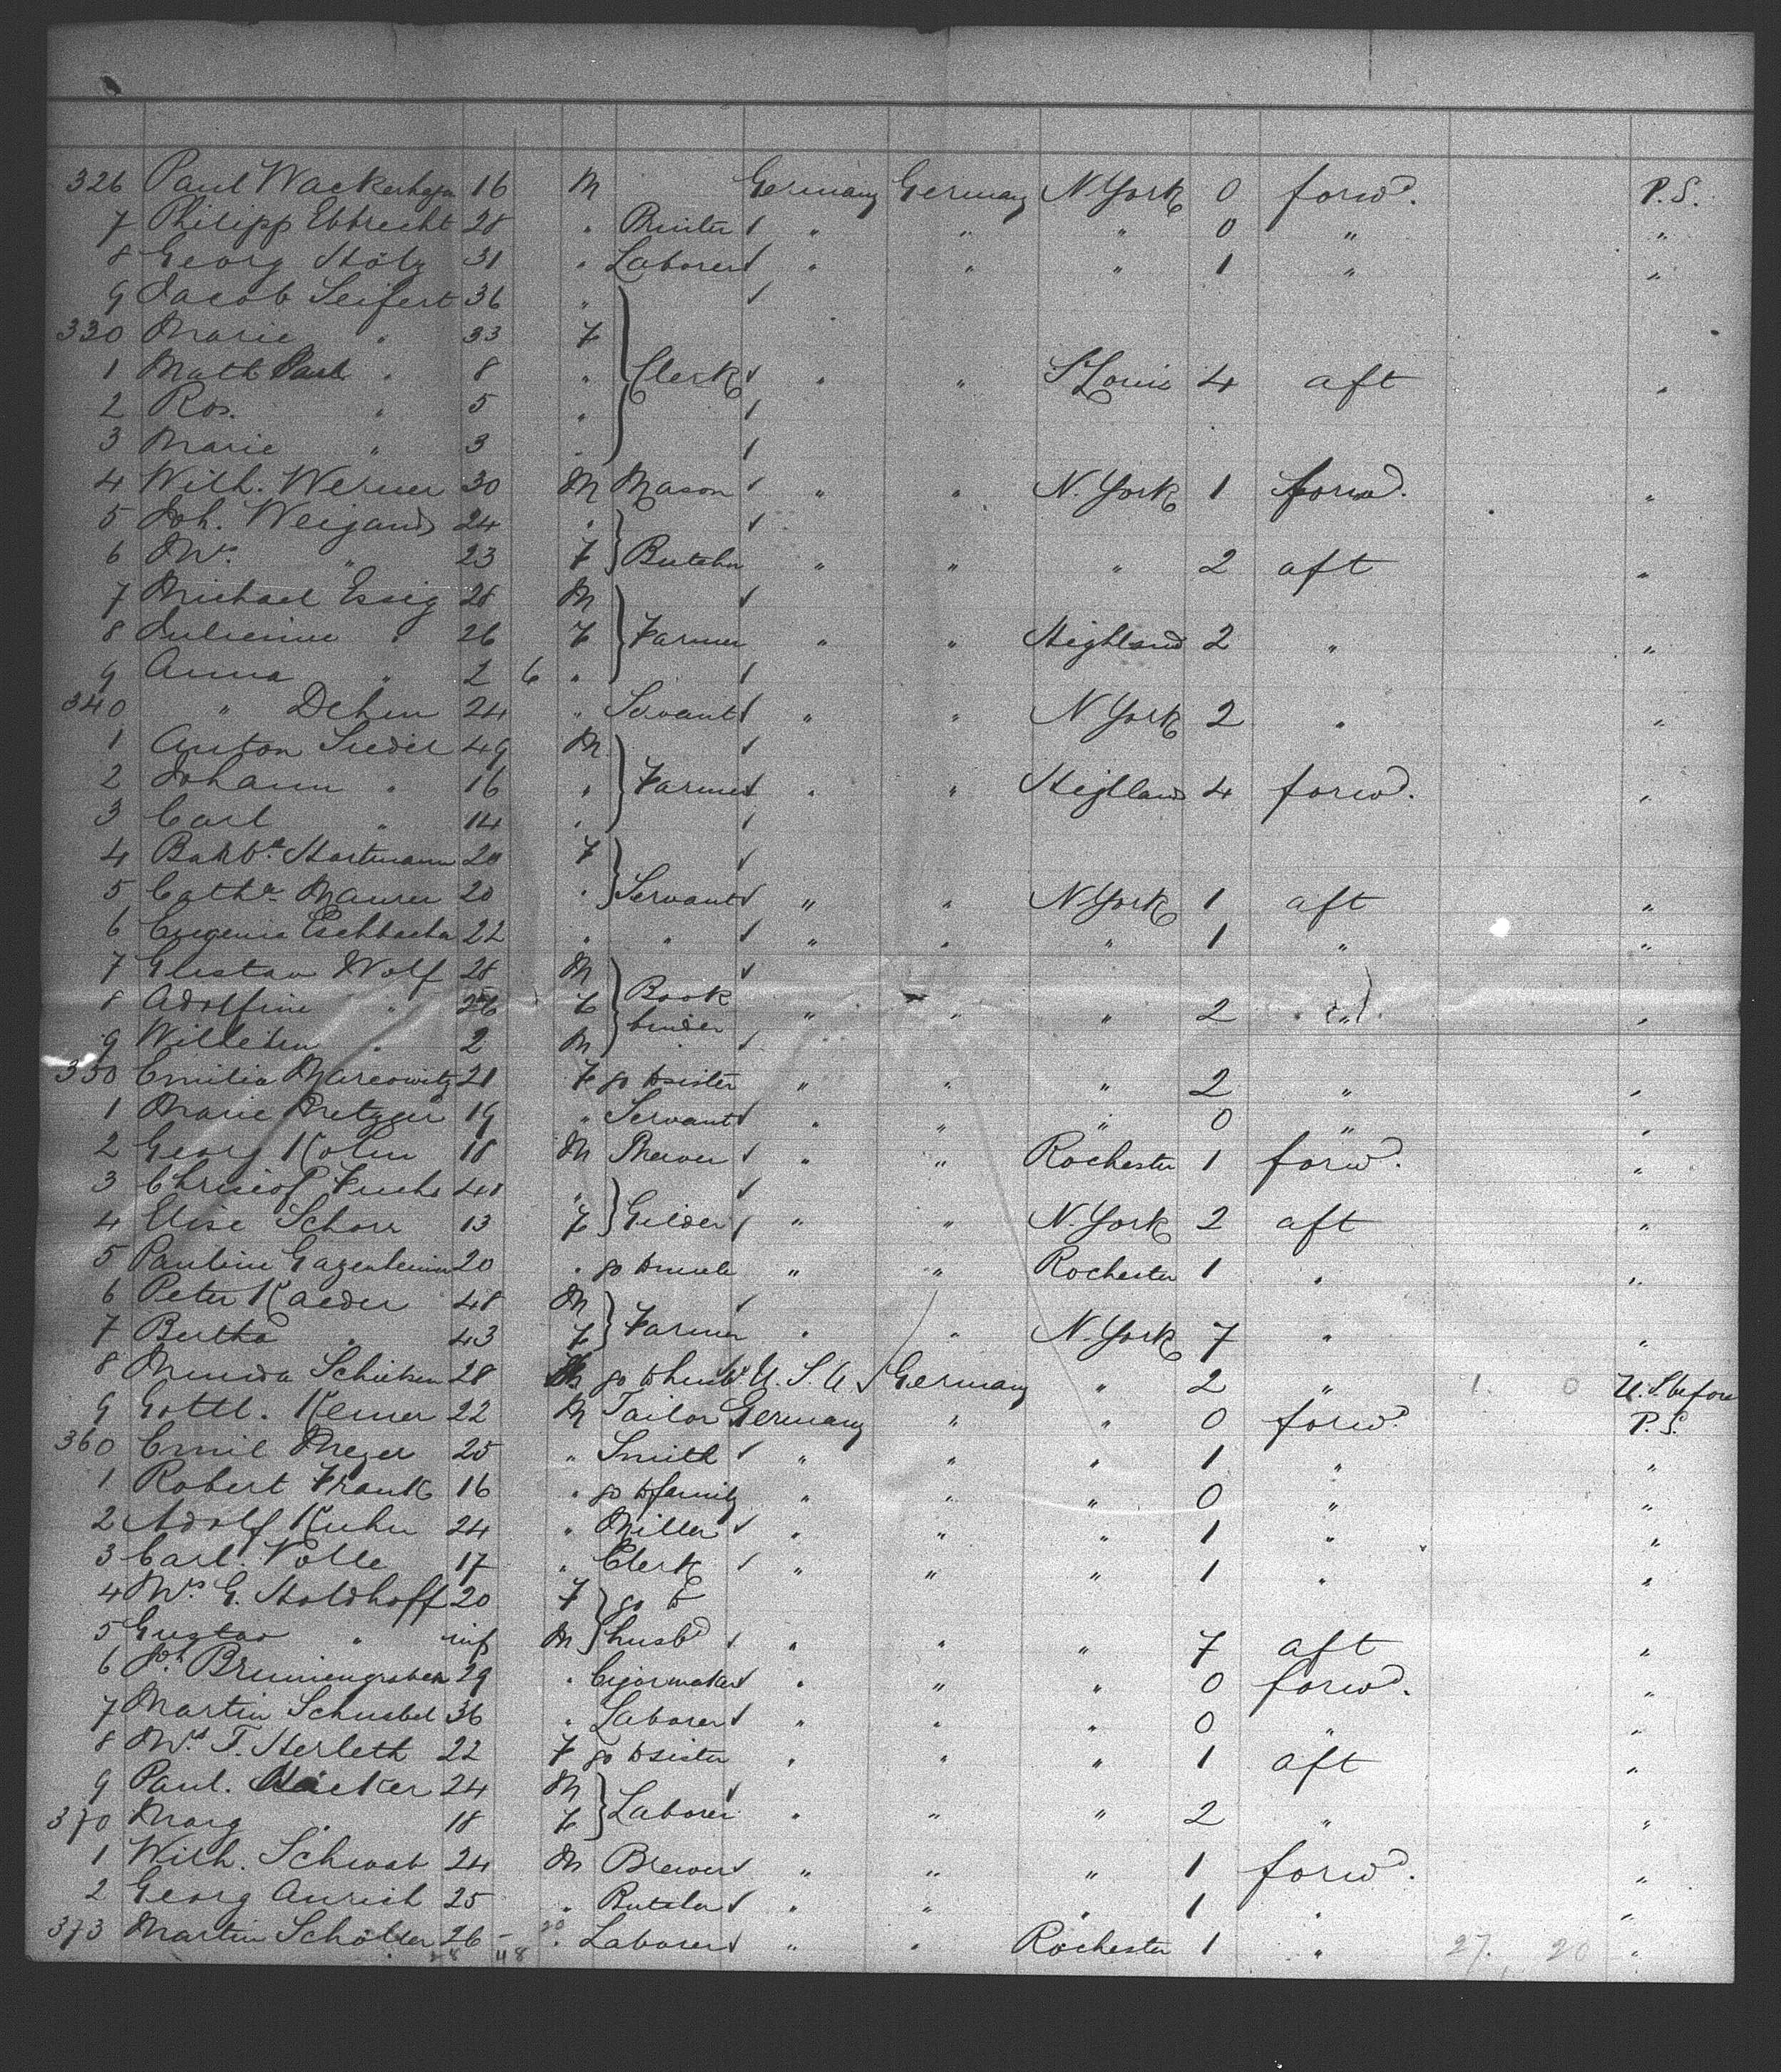 326 Paul Wackerhagen 16 M Germany Germany N. York 0 forwd. P.S.
7 Philipp Ebbrecht 28 " Printer " " " 0 " "
8 Georg Stölz 31 " Laborer " " " 1 " "
9 Jacob Seifert 36 "
330 Marie " 33 F
1 Math Paul " 8 " Clerk " " St Louis 4 aft "
2 Ros. " 5 "
3 Marie " 3 "
4 Wilh. Werner 30 M Mason " " N. York 1 forwd. "
5 Joh. Weigand 24 "
6 Mrs. " 23 F Butcher " " " 2 aft "
7 Michael Essig 28 M
8 Julienine " 26 F Farmer " " Highland 2 " "
9 Anna " 2 6 "
340 " Dehen 24 " Servant " " N York 2 " "
1 Anton Sieder 49 M
2 Johann " 16 " Farmer " " Highland 4 forwd. "
3 Carl " 14 "
4 Barba. Hartmann 20 F
5 Catha Maurer 20 " Servant " " N. York 1 aft "
6 Eugenie Eschbacher 22 " " " " " 1 " "
7 Gustav Wolf 28 M
8 Adolfine " 26 F Book binder " " " 2 " "
9 Wilhelm " 2 M
350 Emilia Marcowitz 21 F go to sister " " " 2 " "
1 Marie Metzger 19 " Servant " " " 0 " "
2 Georg Kolm 18 M Brewer " " Rochester 1 forwd. "
3 Christof Fuchs 41 "
4 Elise Schorr 13 F Gilder " " N. York 2 aft "
5 Pauline 20 " go to uncle " " Rochester 1 " "
6 Peter Kaeder 48 M
7 Bertha " 43 F Farmer " " N. York 7 " "
8 Minda 28 go to husbd U.S.A. Germany " 2 " 1. 0 U.S. before
9 Gottl. Kemer 22 M Tailor Germany " " 0 forwd. P.S.
360 Emil Mezer 25 " Smith " " " 1 " "
1 Robert Frank 16 " go to family " " " 0 " "
2 Adolf Kuhn 24 " Miller " " " 1 " "
3 Carl. Nolle 17 " Clerk " " " 1 " "
4 Mrs. G. Holdhoff 20 F go to
5 Gustav " inf M husbd " " " 7 aft "
6 Joh. Brunnengraber 29 " Cigarmaker " " " 0 forwd. "
7 Martin Schusbel 36 " Laborer " " " 0 " "
8 Mrs. T. Herleth 22 F go to sister " " " 1 aft "
9 Paul. Häcker 24 M
370 Marg " 18 F Laborer " " " 2 " "
1 Wilh. Schwab 24 M Brewer " " " 1 forwd. "
2 Georg Aurich 25 " Butcher " " " 1 " "
373 Martin Schöller 26 " Laborer " " Rochester 1 " 27. 20 "